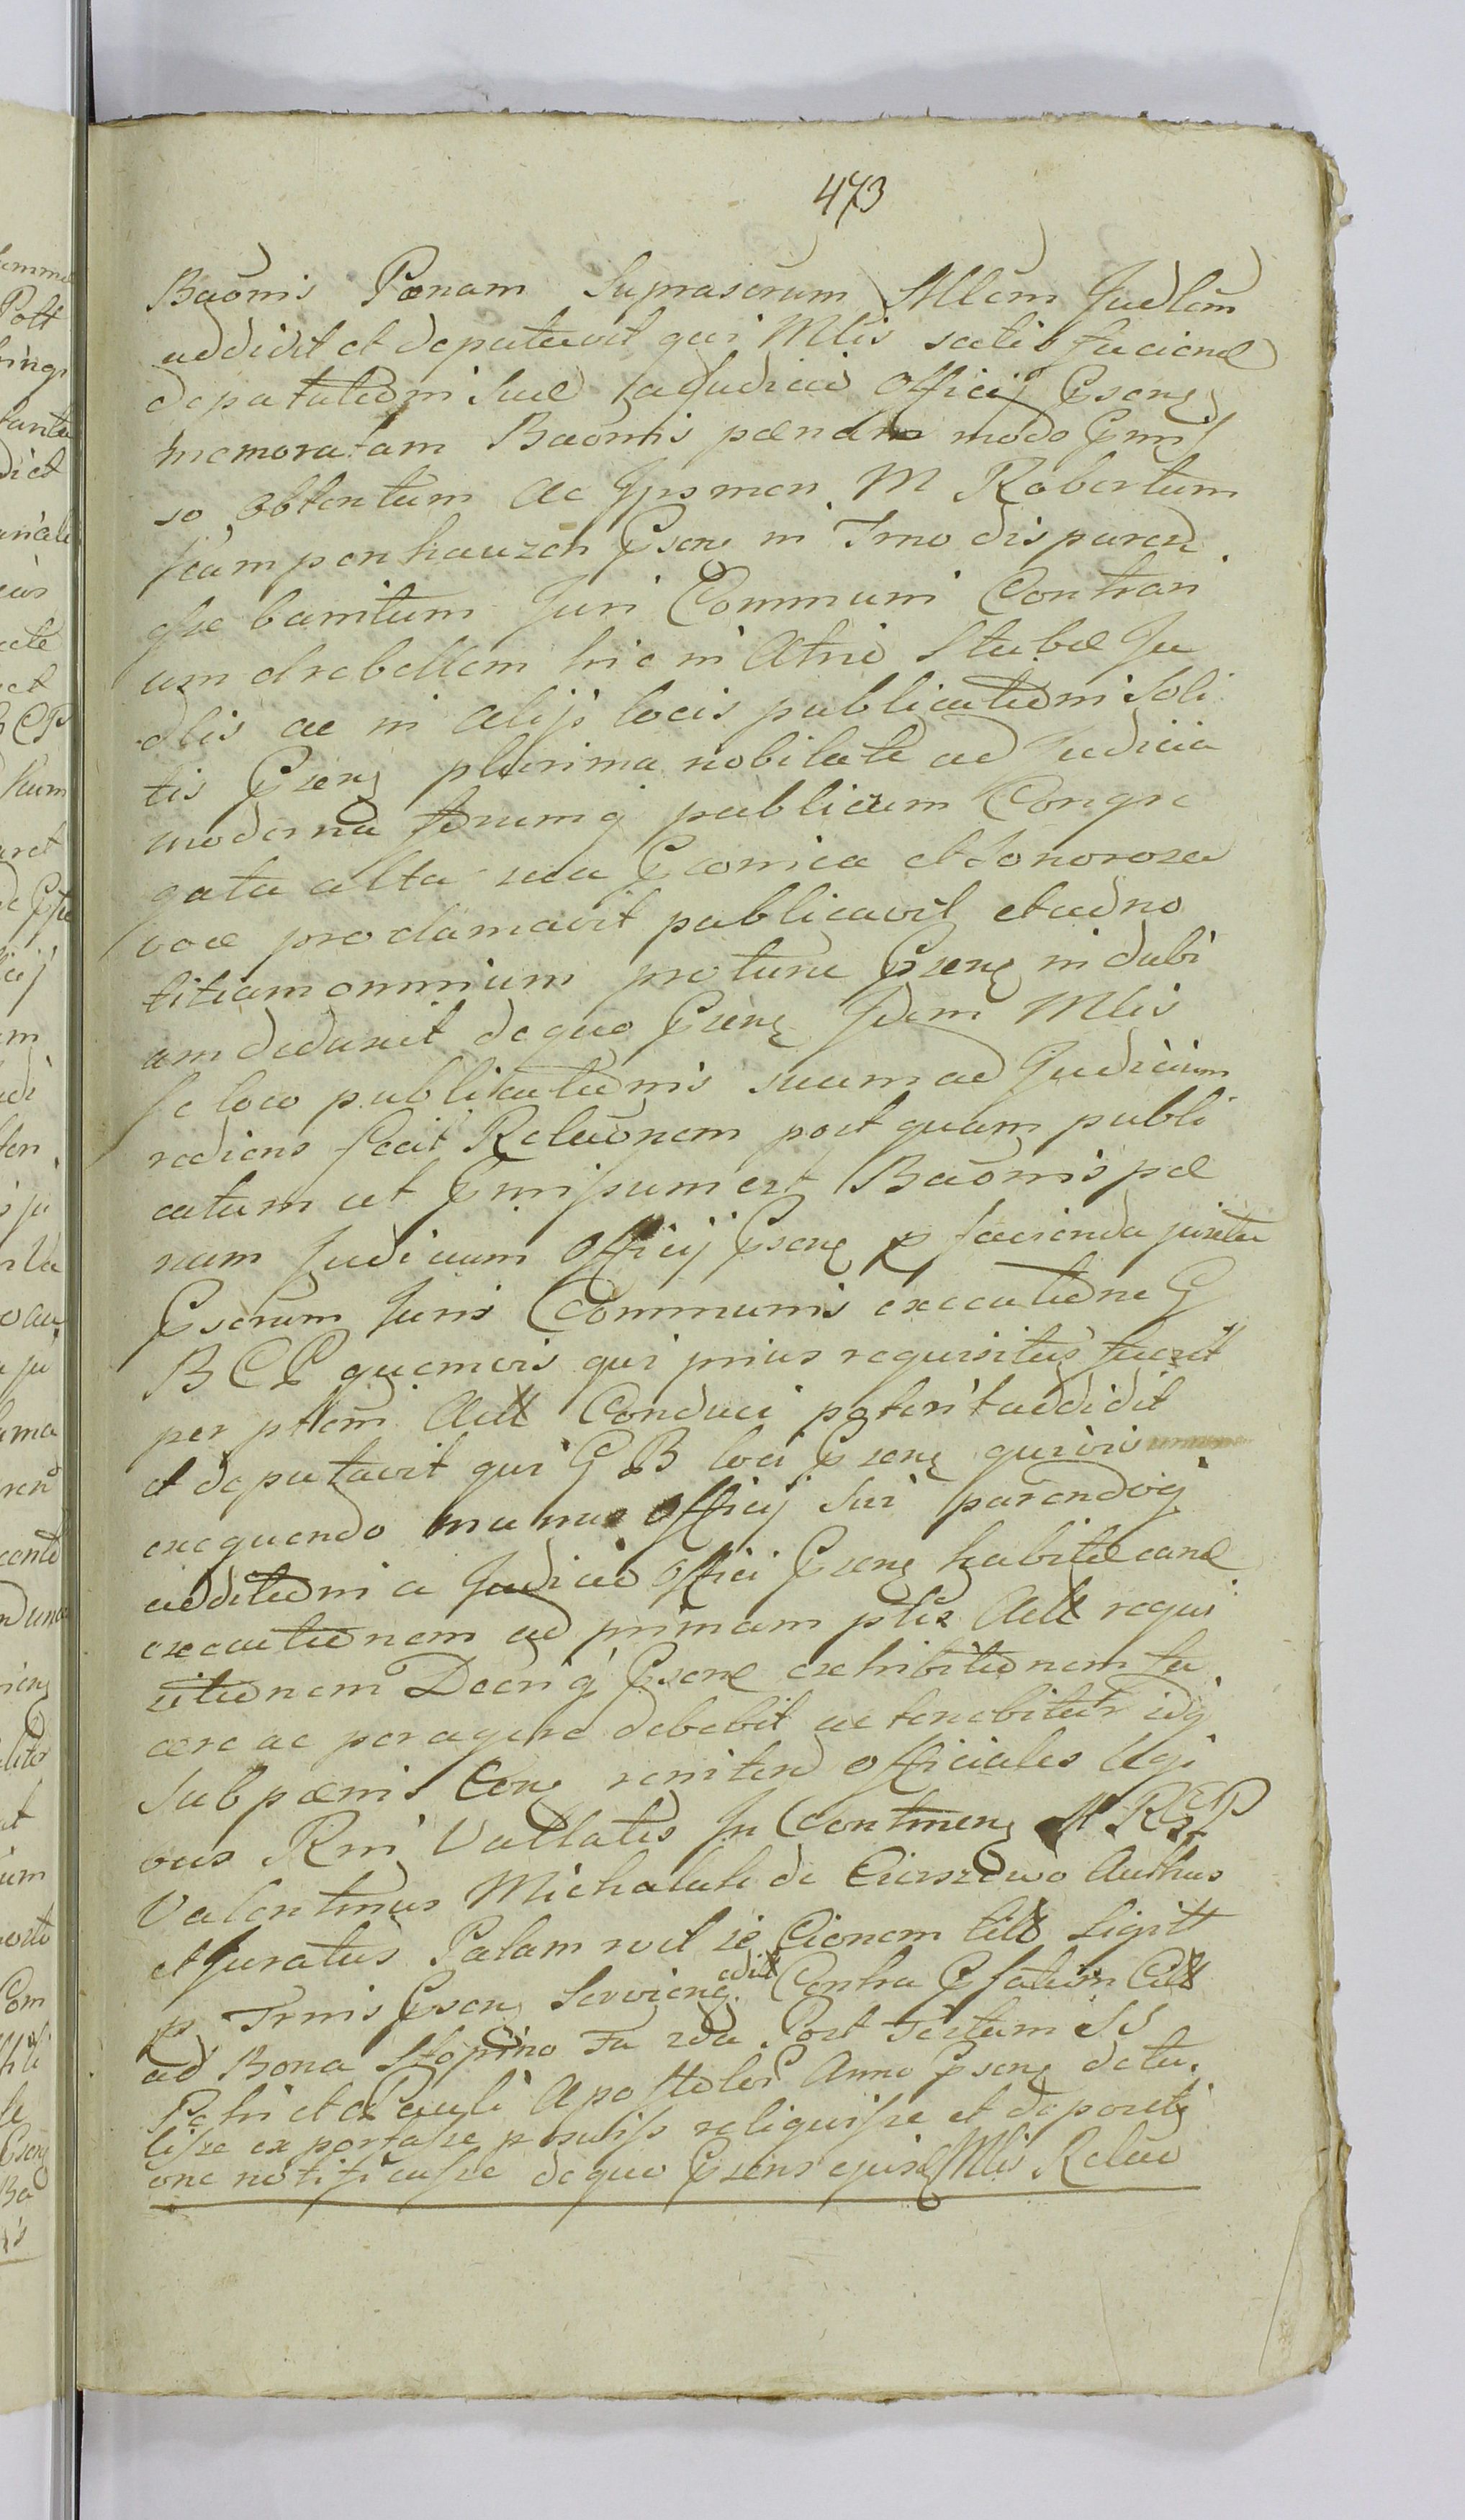 473
Baõnis Pœnam Suprascrum Mllem Judlem
addidit et deputavit qui Mlis satisfaciend
deputationi Suæ a Judicio Officij Psens
memoratam Baõnis pœnam modo Pmis
so obtentum ac Ipsmen M Robertum
Kampenhauzen Psens in Trno disparen
que banitum Juri Communi Contrari
um et rebellem hic in Atrio Stubæ Ju
dlis ac in alijs locis publicationi Soli
tis Psens plurima nobilate ad Judicia
moderna forumq publicum Congre
gata alta sua Pconica et Sonorosa
voce proclamavit publicavit et ad no
titiam omnium pro ture Psens in dubi
am deduxit de quo Psens Idem Mlis
se loco publicationis suum ad Judicium
rediens fecit Relaõnem post quam publi
catam ut Pmissum est Baõnis pœ
nam Judicium Officij Psens p facienda juxta
Pscrum Juris Communis executione G
B C P quemvis qui prius requisitus fuerit
per ptem Act Conduci poterit addidit
et deputavit qui G B loci Psens quivis
exequendo munus Officij Sui parendoq
additioni a Judicio Offici Psens habitæ eand
executionem ad primam ptis Act requi
sitionem Decriq Psens exhibitionem fa
cere ac peragere debebit ac tenebitur idq
Sub pœnis Con reniten Officiales Legi
bus Rni Vallatis In Continen M R P
Valentinus Michalak de Cieszewo Authus
et Juratus Palam recl se Cionem litt Sigitt
p Trnis Psens Serviens edit Contra Psatum Citt
ad Bona Stopino Fa 2da Post Festum SS
Petri et Pauli Apostolor Anno Psens detu
lisse ex portasse p suisse reliquisse et depositi
one notificasse de quo Psens ejusd Mlis Relao